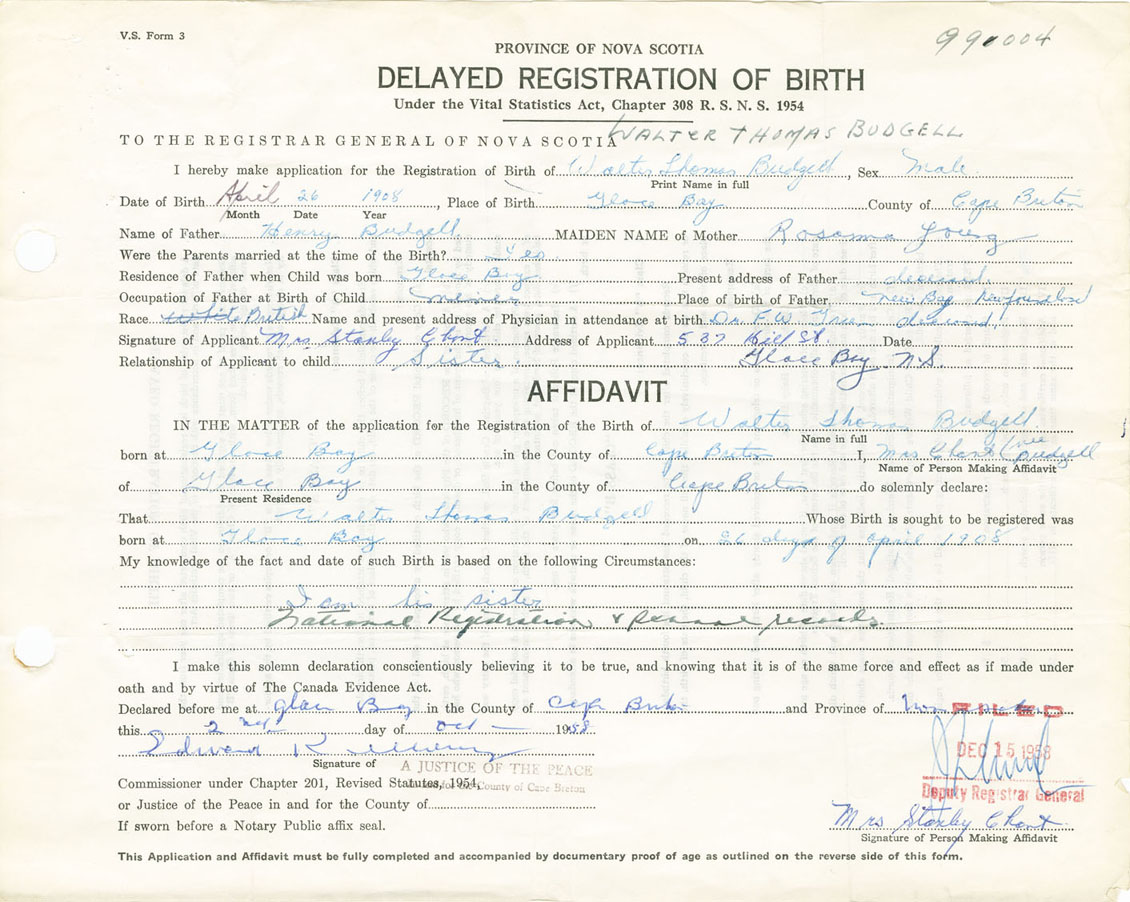 V.S. Form 3
991004
PROVINCE OF NOVA SCOTIA
DELAYED REGISTRATION OF BIRTH
Under the Vital Statistics Act, Chapter 308 R. S. N. S. 1954
TO THE REGISTRAR GENERAL OF NOVA SCOTIA WALTER THOMAS BUDGELL
I hereby make application for the Registration of Birth of Walter Thomas Budgell, Sex Male
Print Name in full
Date of Birth April 26 1908, Place of Birth Glace Bay County of Cape Breton
Month Date Year
Name of Father Henry Budgell MAIDEN NAME of Mother Rosanna Young
Were the Parents married at the time of the Birth? Yes
Residence of Father when Child was born Glace Bay Present address of Father deceased
Occupation of Father at Birth of Child Miner Place of birth of Father New Bay Newfoundland
Race White British Name and present address of Physician in attendance at birth Dr. F W Green deceased
Signature of Applicant Mrs Stanly Chant Address of Applicant 537 Hill St. Date
Relationship of Applicant to child Sister Glace Bay N.S.
AFFIDAVIT
IN THE MATTER of the application for the Registration of the Birth of Walter Thomas Budgell
Name in full
born at Glace Bay in the County of Cape Breton I, Mrs Chant (nee Budgell
Name of Person Making Affidavit
of Glace Bay in the County of Cape Breton do solemnly declare:
Present Residence
That Walter Thomas Budgell Whose Birth is sought to be registered was
born at Glace Bay on 26 day of april 1908
My knowledge of the fact and date of such Birth is based on the following Circumstances:
I am his sister
National Registration & records.
I make this solemn declaration conscientiously believing it to be true, and knowing that it is of the same force and effect as if made under
oath and by virtue of The Canada Evidence Act.
Declared before me at Glace Bay in the County of Cape Breton and Province of Nova Scotia
FILED
this 2nd day of Oct 1958
DEC 15 1958
Edward R
Signature of
A JUSTICE OF THE PEACE
Commissioner under Chapter 201, Revised Statutes, 1954,
in and for the County of Cape Breton
Deputy Registrar General
or Justice of the Peace in and for the County of
Mrs Stanly Chant
If sworn before a Notary Public affix seal.
Signature of Person Making Affidavit
This Application and Affidavit must be fully completed and accompanied by documentary proof of age as outlined on the reverse side of this form.